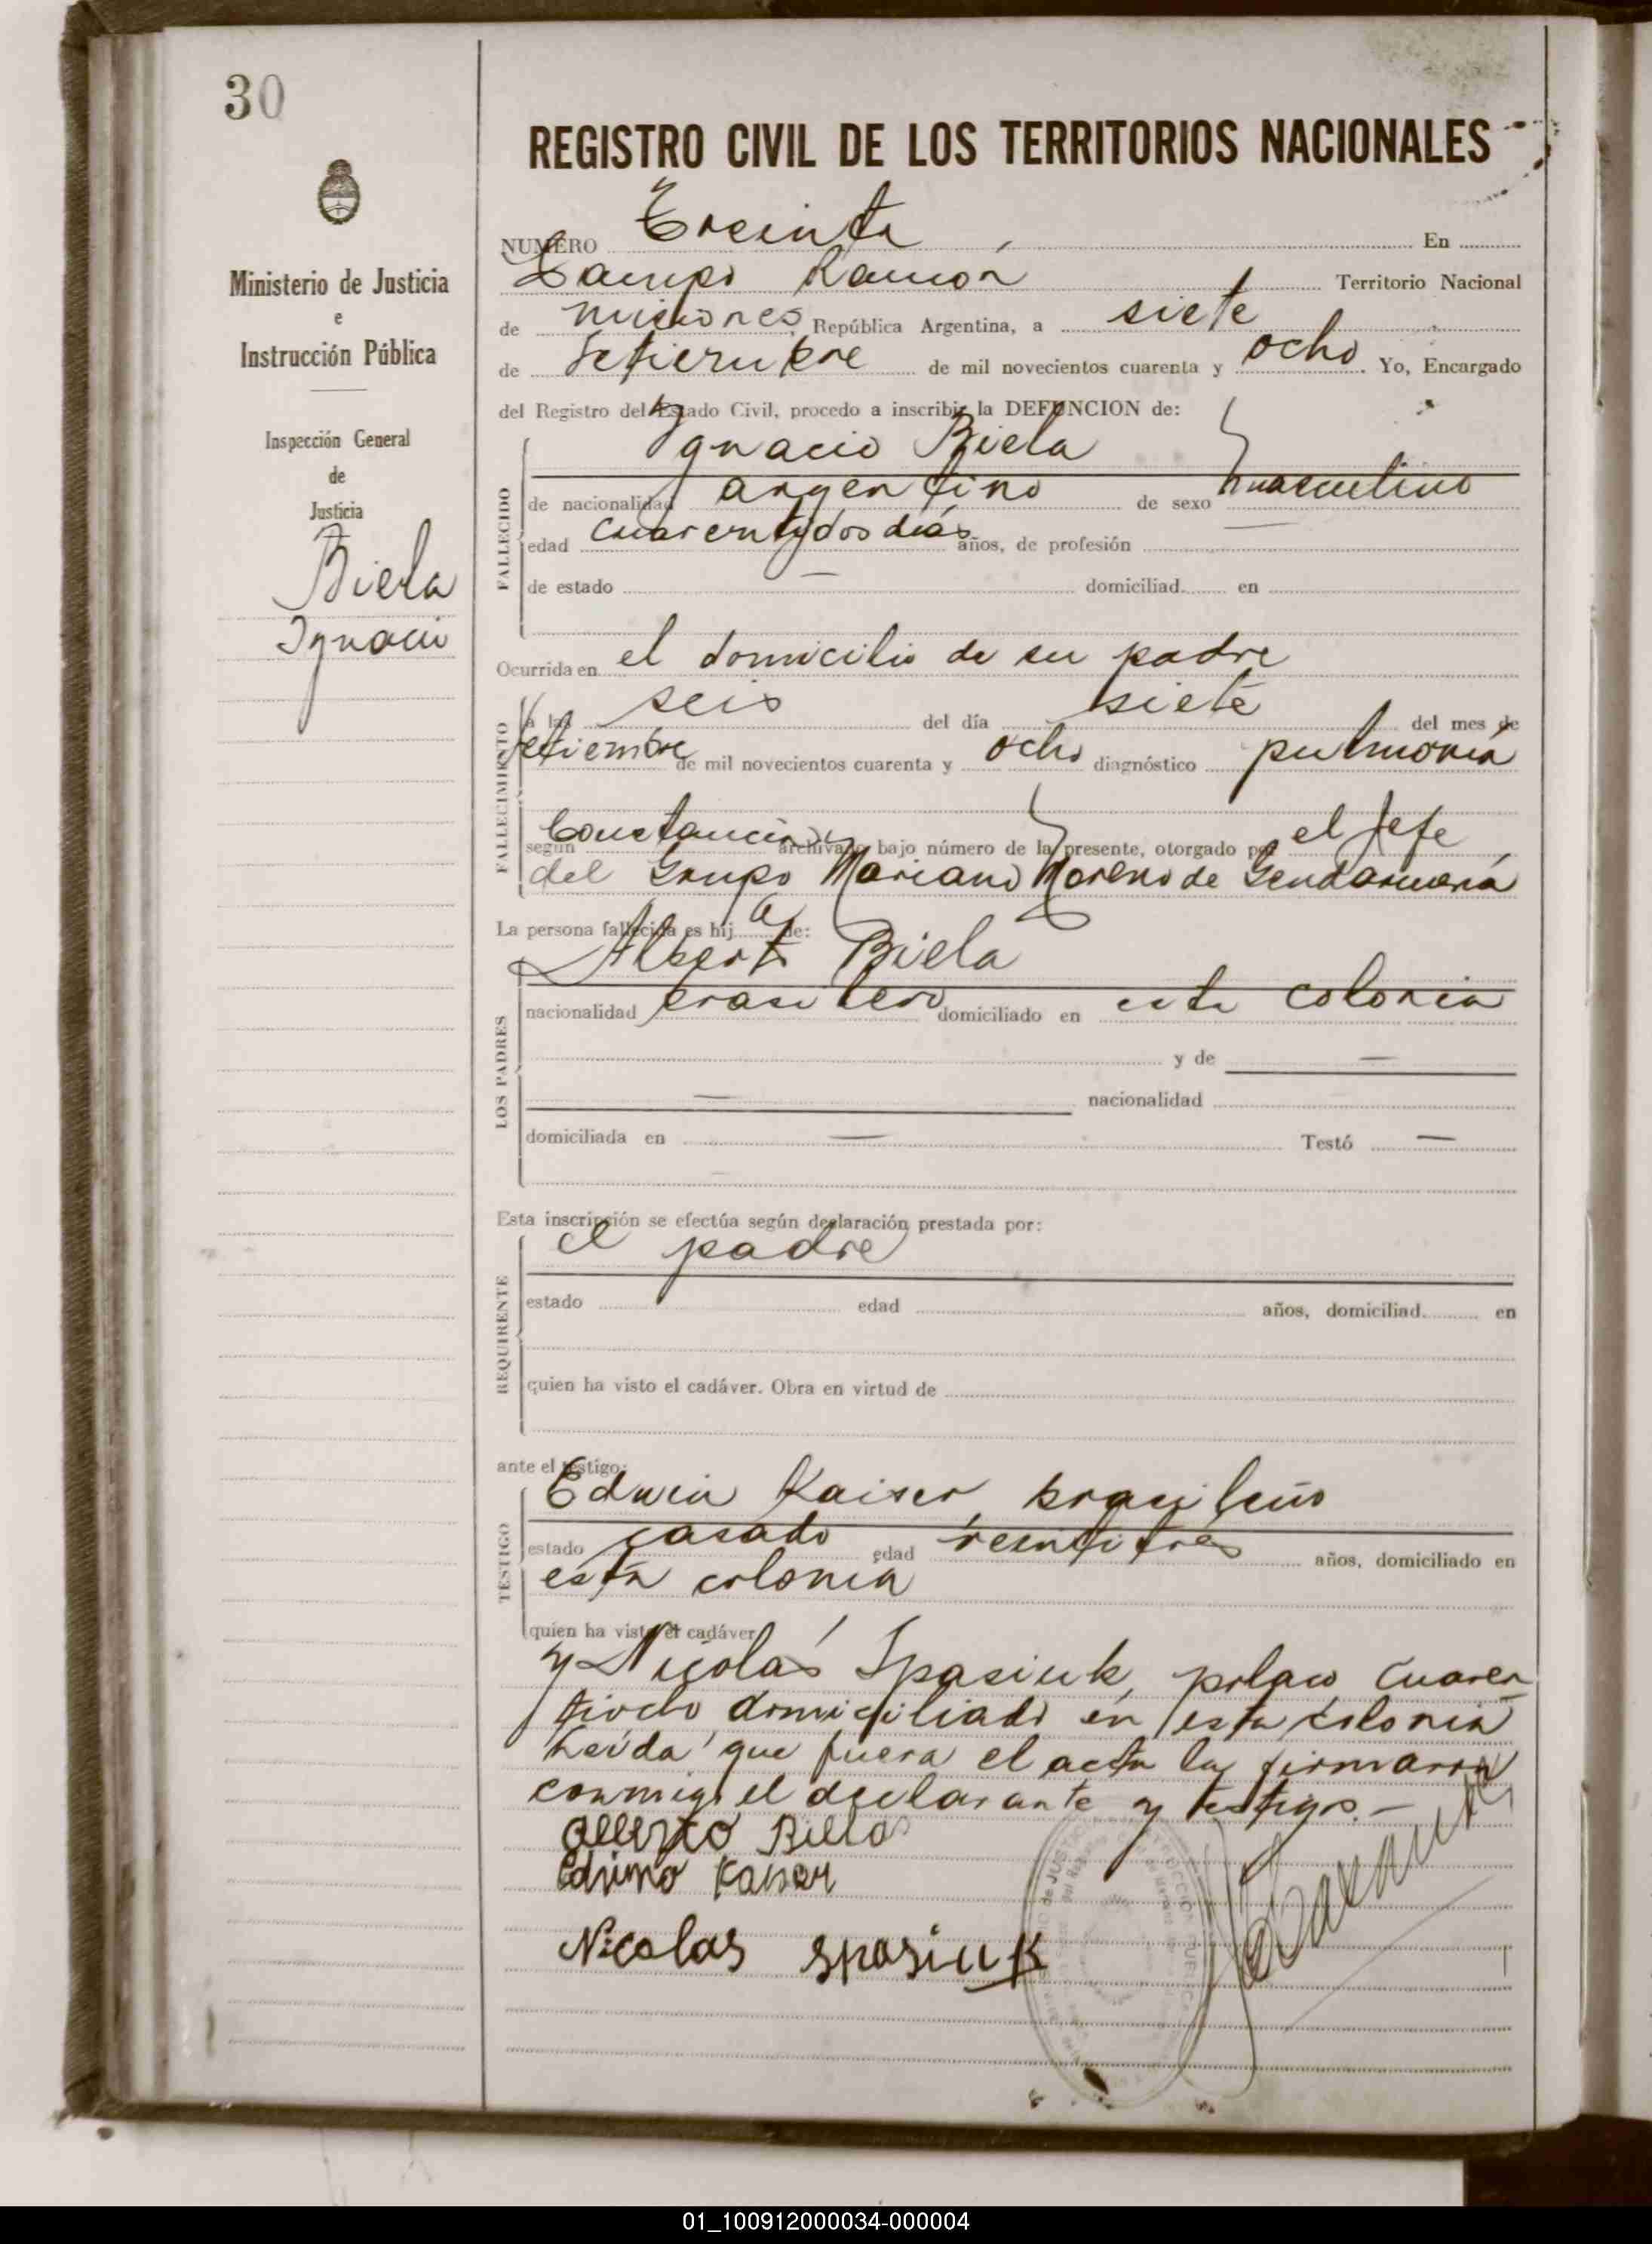 30
Ministerio de Justicia
e
Instrucción Pública
Inspección General
de
Justicia
Biela
Ignacio
REGISTRO CIVIL DE LOS TERRITORIOS NACIONALES
NUMERO Treinta, En
Campo Ramón Territorio Nacional
de Misiones, República Argentina, a siete
de Setiembre de mil novecientos cuarenta y ocho Yo, Encargado
del Registro del Estado Civil, procedo a inscribir la DEFUNCION de:
Ignacio Biela
FALLECIDO
de nacionalidad argentino de sexo masculino
edad cuarentydos días años, de profesión
de estado — domiciliad en
Ocurrida en el domicilio de su padre
FALLECIMIENTO
a las seis del día siete del mes de
setiembre de mil novecientos cuarenta y ocho diagnóstico pulmonía
según Constancia archivado bajo número de la presente, otorgado por el Jefe
del Grupo Mariano Moreno de Gendarmería
La persona fallecida es hij o de:
Alberto Biela
LOS PADRES
nacionalidad brasilero domiciliado en esta colonia
y de —
— nacionalidad
domiciliada en — Testó —
Esta inscripción se efectúa según declaración prestada por:
el padre
REQUIRENTE
estado edad años, domiciliad en
quien ha visto el cadáver. Obra en virtud de
ante el testigo:
Edwin Kaiser, brasileño
TESTIGO
estado casado edad veintitres años, domiciliado en
esta colonia
quien ha visto el cadáver
y Nicolás Spasiuk, polaco cuaren
tiocho domiciliado en esta colonia
Leída que fuera el acta la firmaron
conmigo el declarante y testigos.—
Alberto Biela
Edvino Kaiser
Nicolas Spasiuk
01_100912000034-000004